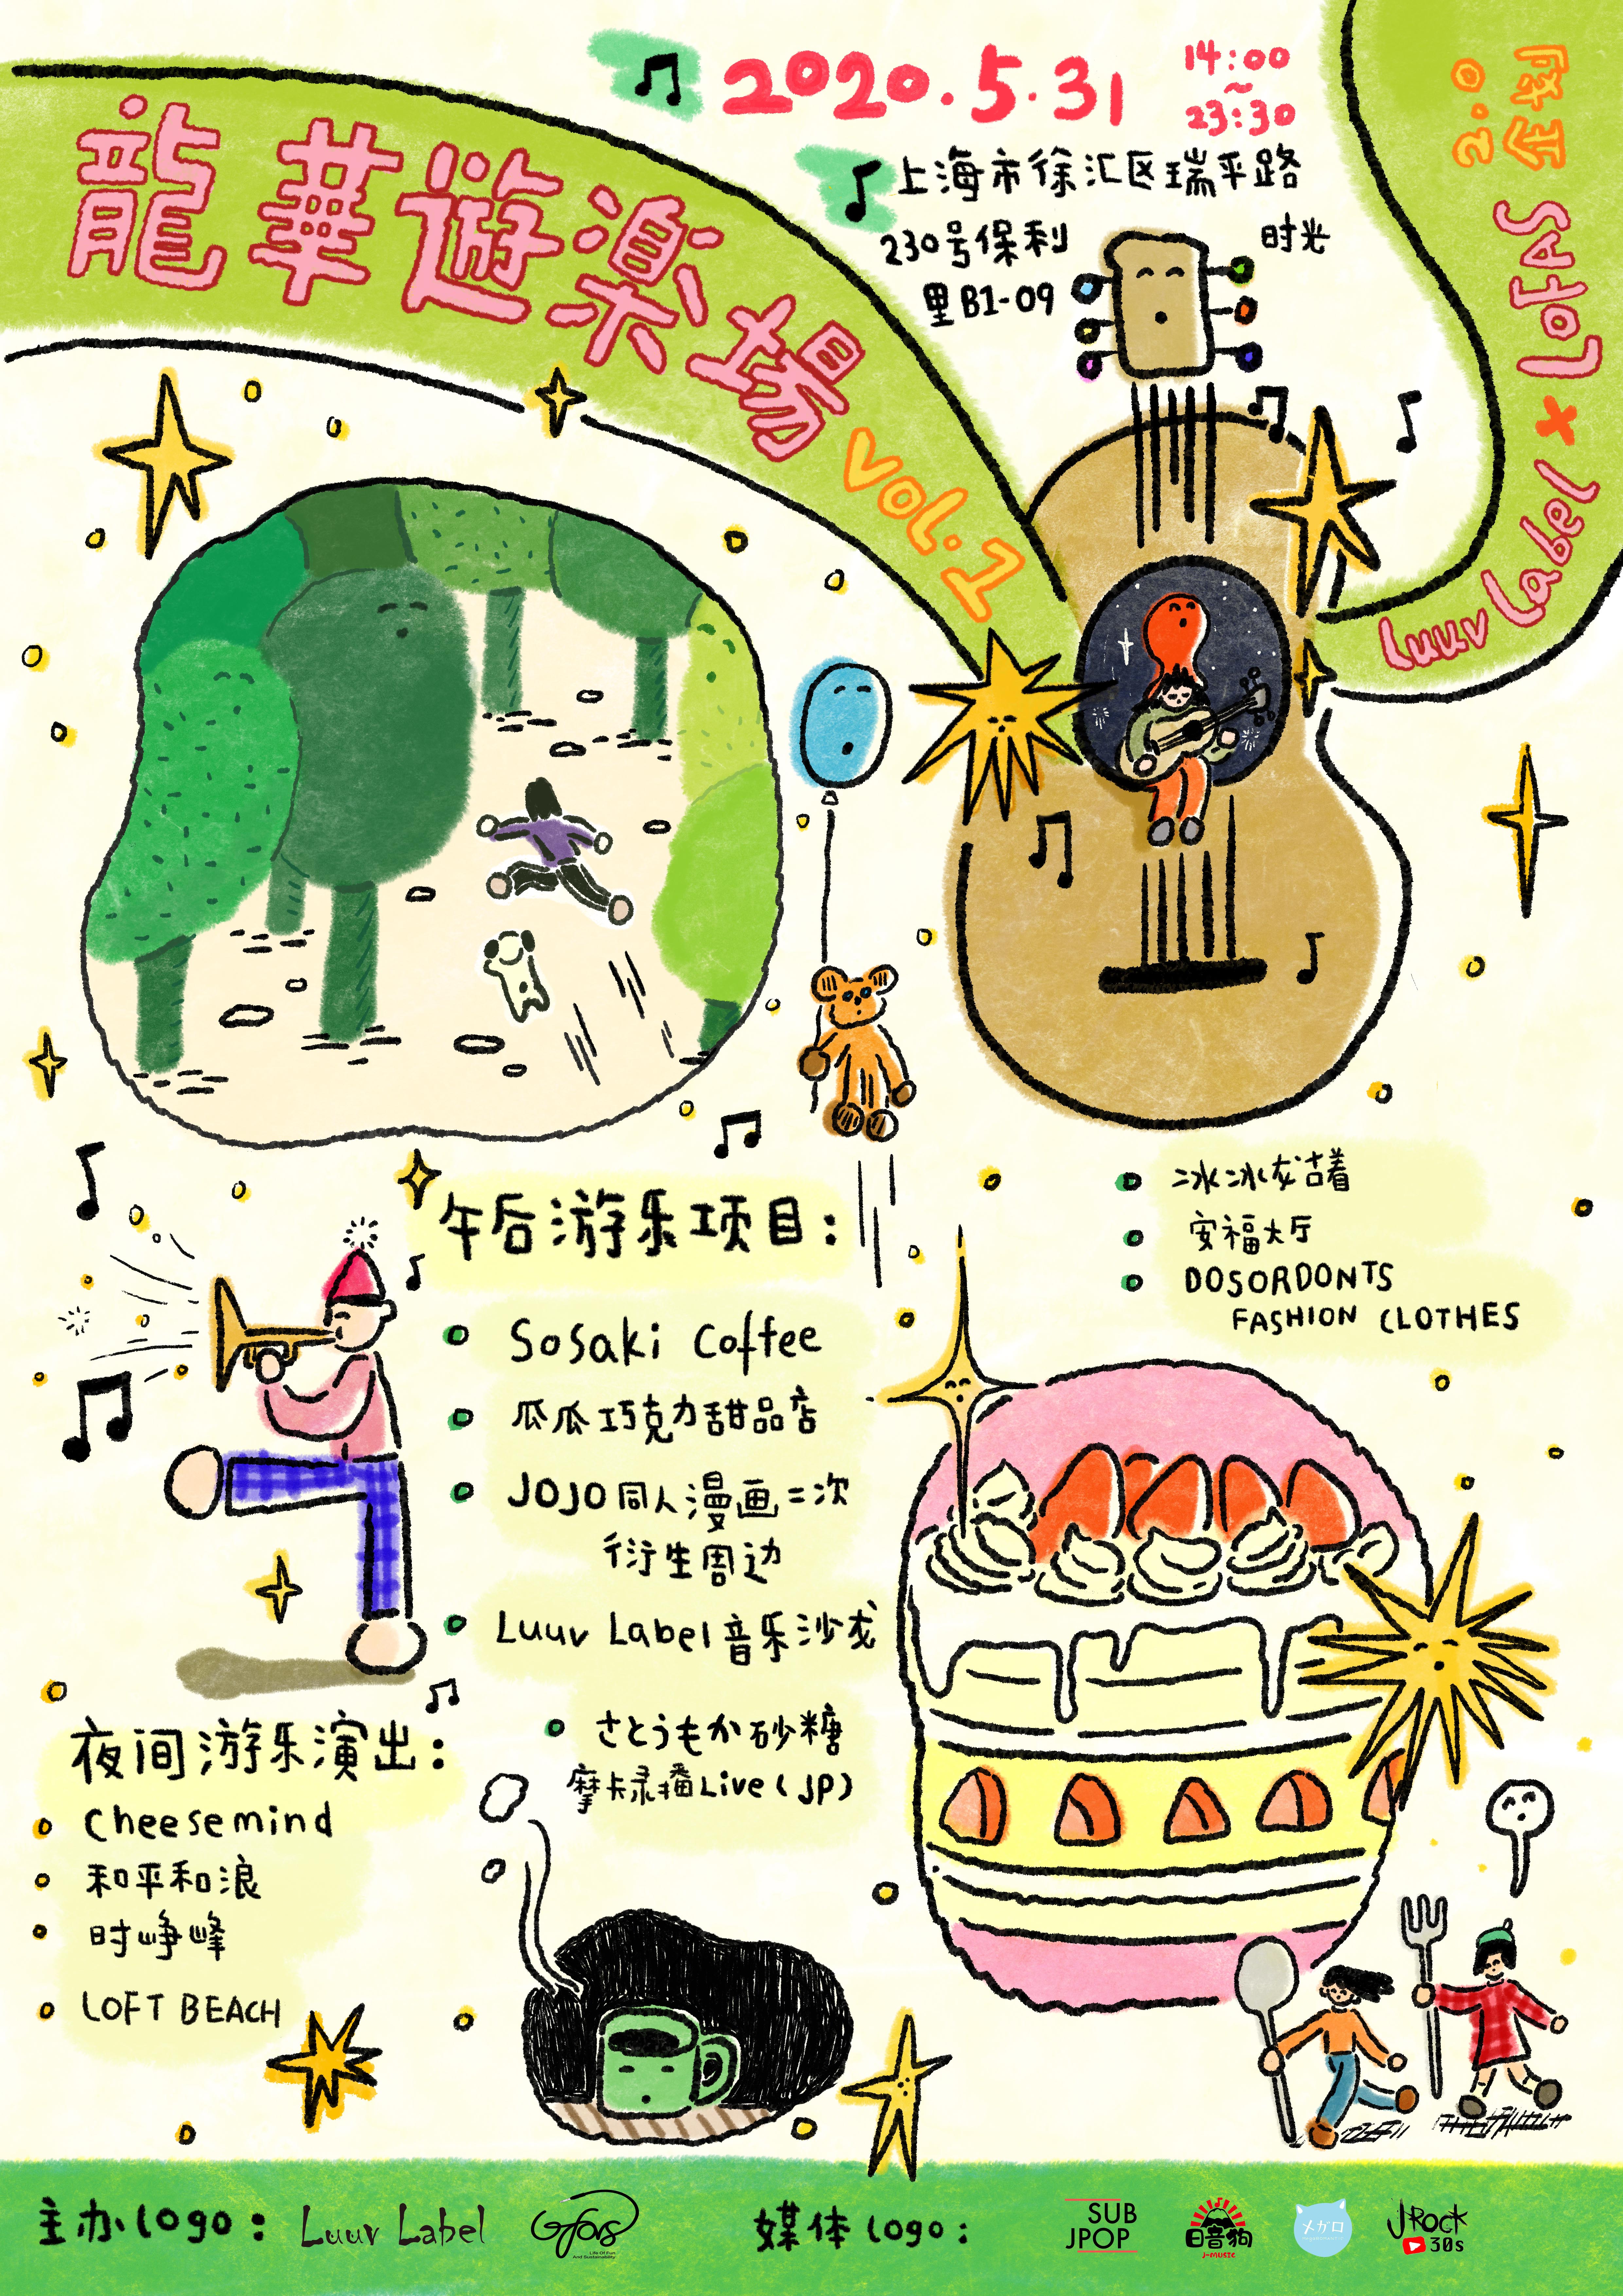 2020.5.31
14:00
~
23:30
上海市徐汇区瑞平路
230号保利时光
里B1-09
龍華遊楽場
vol.1
Luuv Label × LOFAS
企划
2.0
午后游乐项目:
Sosaki Coffee
瓜瓜巧克力甜品店
JOJO同人漫画二次
衍生周边
Luuv Label音乐沙龙
さとうもか砂糖
摩卡录播Live(JP)
冰冰龙古着
安福大厅
DOSORDONTS
FASHION CLOTHES
夜间游乐演出:
Cheesemind
和平和浪
时峥峰
LOFT BEACH
主办logo:
Luuv Label
Lofas
Life Of Fun
And Sustainability
媒体logo:
SUB
JPOP
日音狗
J-MUSIC
メガロ
JROCK
30s